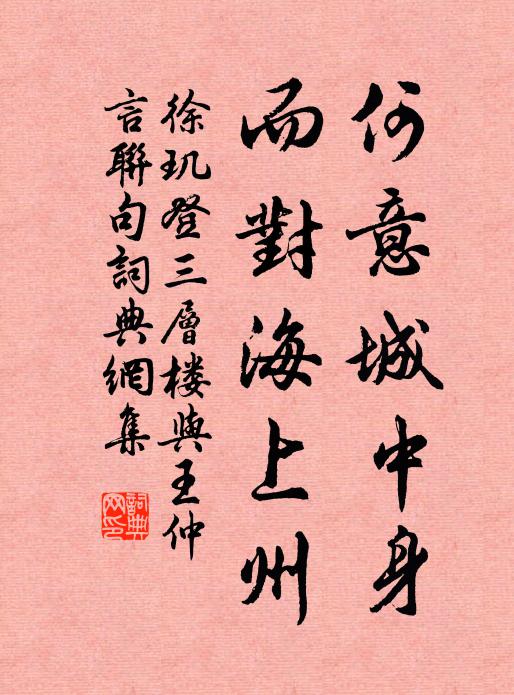 何意城中身
而對海上州
徐玑登三層楼與王仲
言聯句詞典網集
詞典
网印